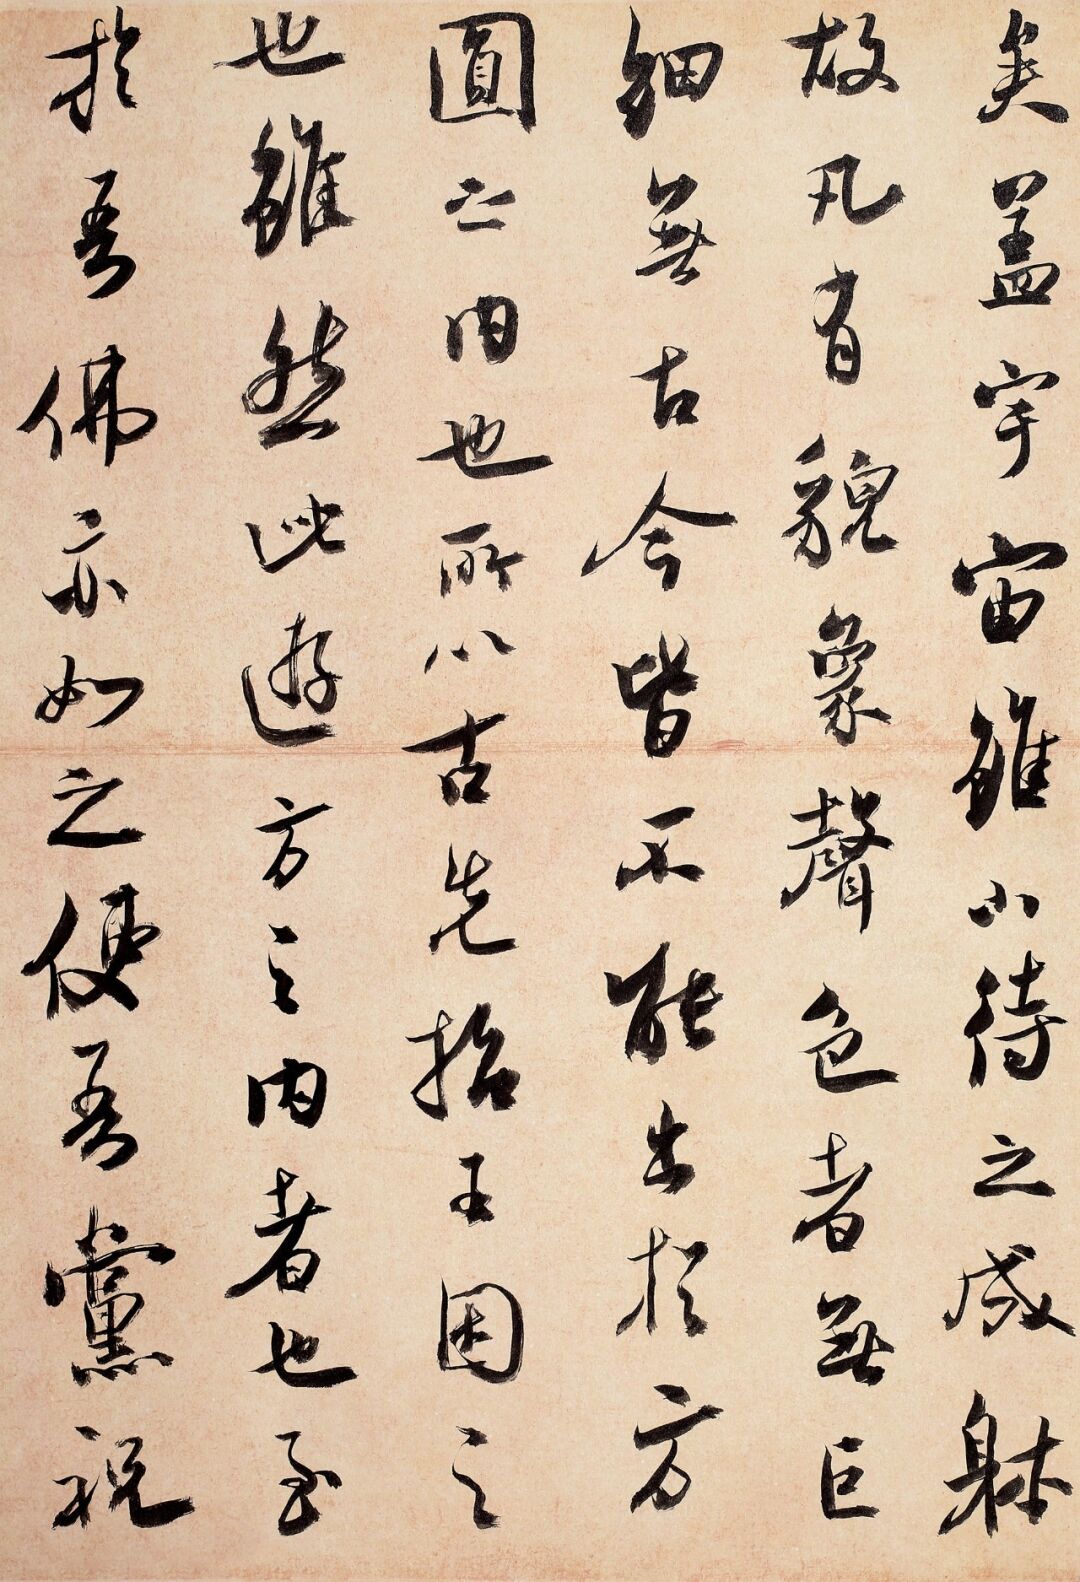 矣盖宇宙雖小待之成躰
故凡有貌象聲色者無巨
細無古今皆不能出於方
圓之内也所以古先哲王因之
也雖然此遊方之内者也至
於吾佛亦如之使吾黨祝